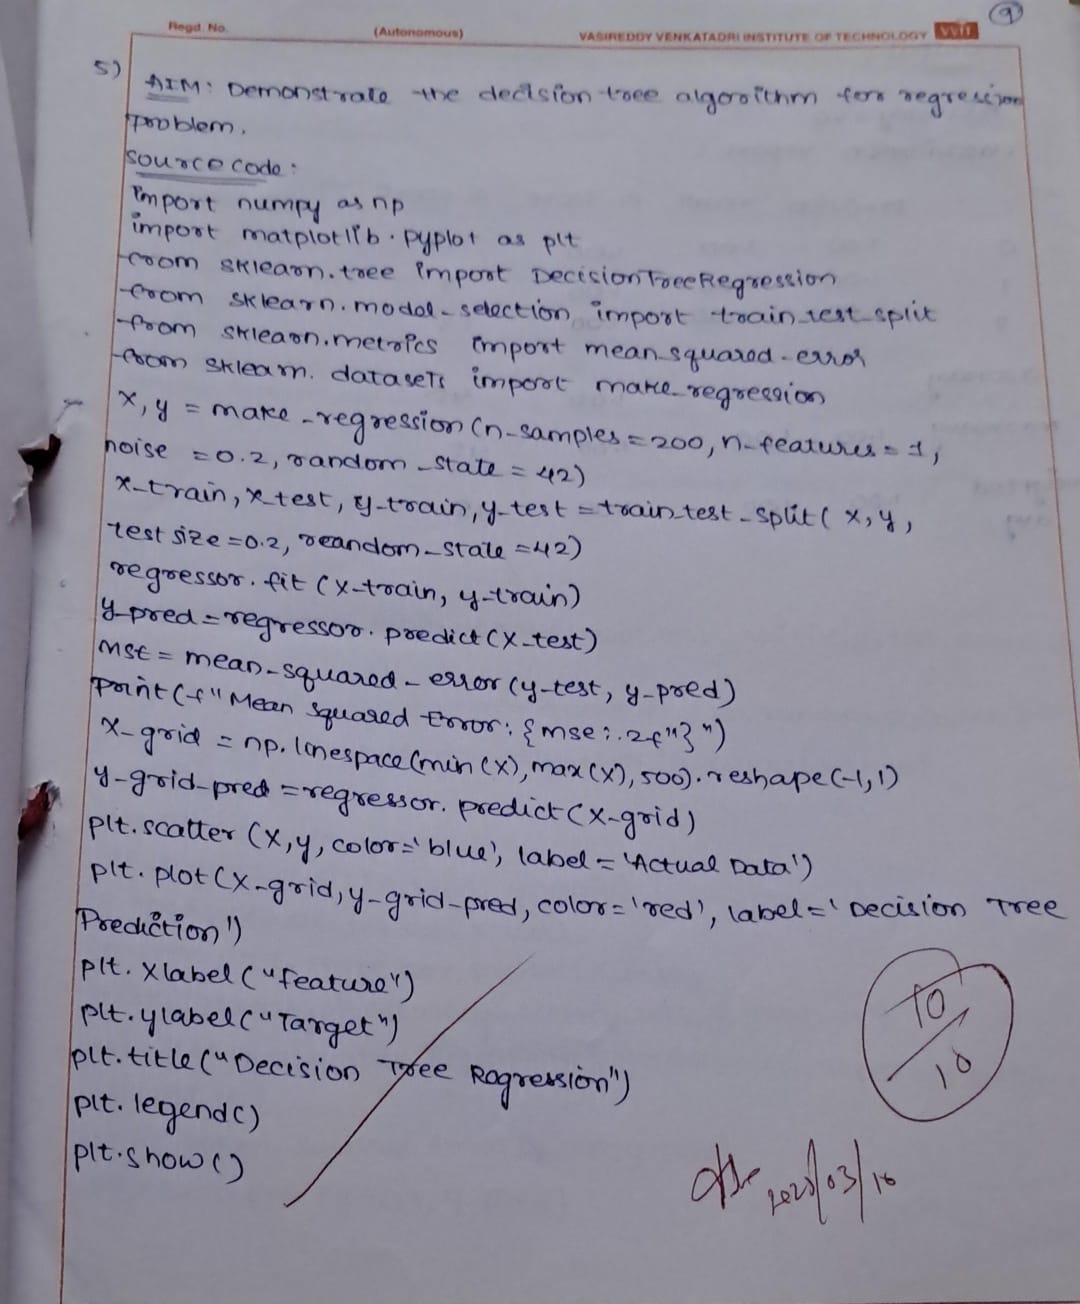 9
Regd. No. (Autonomous) VASIREDDY VENKATADRI INSTITUTE OF TECHNOLOGY VVIT
5) AIM: Demonstrate the decision tree algorithm for regression
problem.
Source code:
import numpy as np
import matplotlib.pyplot as plt
from sklearn.tree import DecisionTreeRegression
from sklearn.model_selection import train_test_split
from sklearn.metrics import mean_squared_error
from sklearn.datasets import make_regression
X, y = make_regression (n_samples = 200, n_features = 1,
noise = 0.2, random_state = 42)
x_train, x_test, y_train, y_test = train_test_split( x, y,
test size = 0.2, reandom_state = 42)
regressor.fit (x_train, y_train)
y_pred = regressor.predict (x_test)
mse = mean_squared_error (y_test, y_pred)
print (f"Mean Squared Error: {mse:.2f"}")
x_grid = np.linespace(min(x), max(x), 500).reshape(-1,1)
y_grid_pred = regressor.predict(x_grid)
plt.scatter (x, y, color='blue', label = 'Actual Data')
plt.plot (x_grid, y_grid_pred, color = 'red', label = 'Decision Tree
Prediction')
plt.xlabel ("feature")
plt.ylabel ("Target")
plt.title ("Decision Tree Rogression")
plt.legend()
plt.show()
10
10